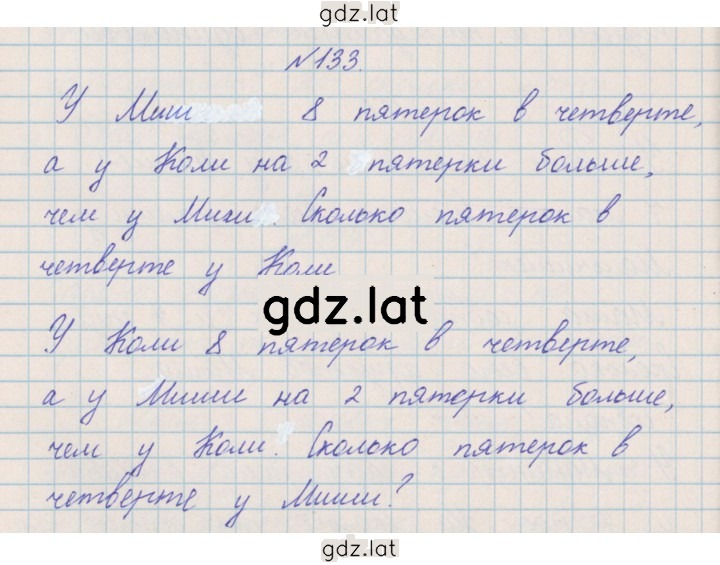 gdz.lat
№133.
У Миш 8 пятерок в четверте,
а у Коли на 2 пятерки больше,
чем у Миши. Сколько пятерок в
четверте у Коли
gdz.lat
У Коли 8 пятерок в четверте,
а у Миши на 2 пятерки больше,
чем у Коли. Сколько пятерок в
четверте у Миши?
gdz.lat